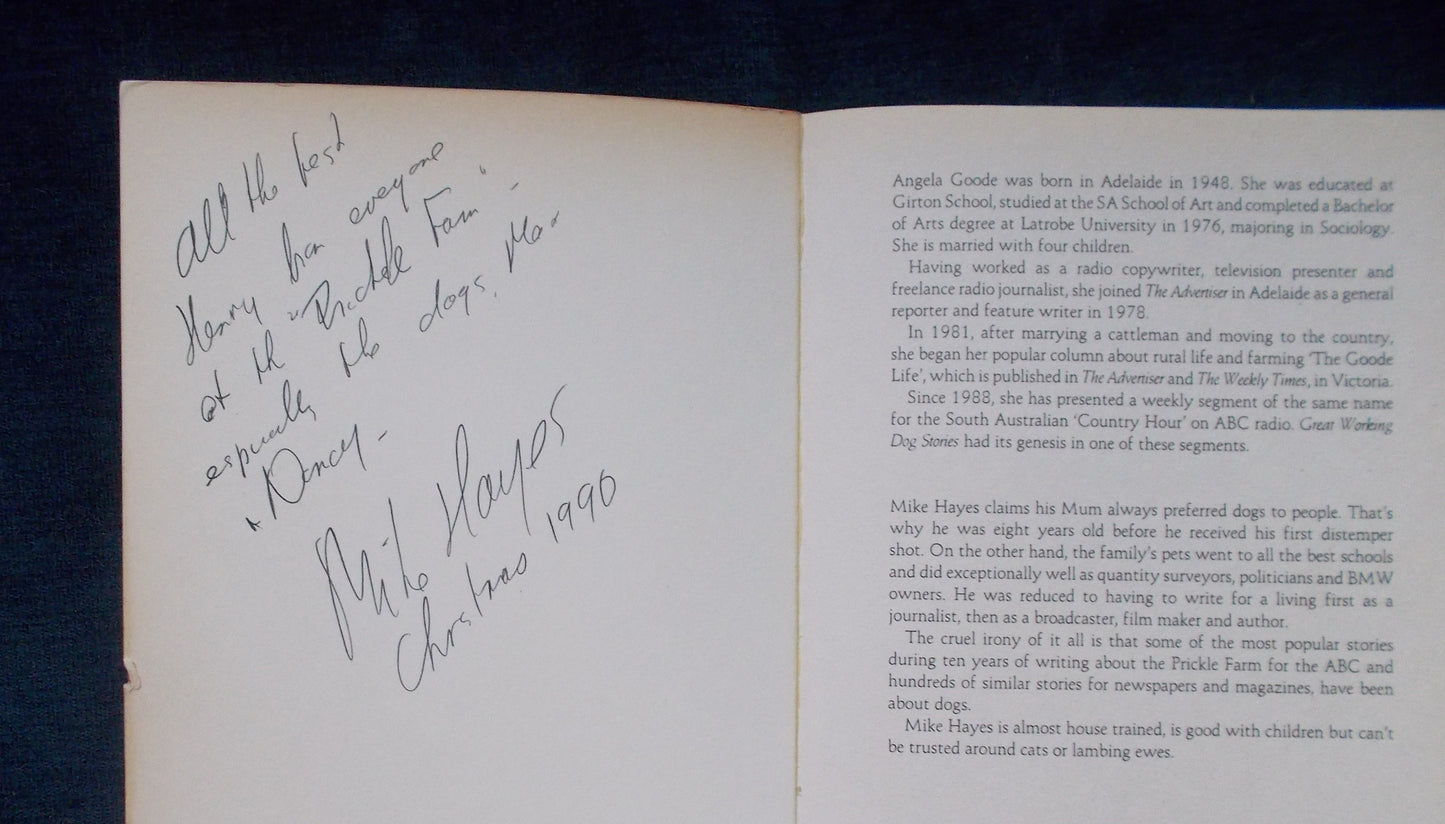 All the best
Henry from everyone
at the "Prickle Farm"
especially the dogs, Max
& Nancy -
Mike Hayes
Christmas 1990
Angela Goode was born in Adelaide in 1948. She was educated at
Girton School, studied at the SA School of Art and completed a Bachelor
of Arts degree at Latrobe University in 1976, majoring in Sociology.
She is married with four children.
Having worked as a radio copywriter, television presenter and
freelance radio journalist, she joined The Advertiser in Adelaide as a general
reporter and feature writer in 1978.
In 1981, after marrying a cattleman and moving to the country,
she began her popular column about rural life and farming 'The Goode
Life', which is published in The Advertiser and The Weekly Times, in Victoria.
Since 1988, she has presented a weekly segment of the same name
for the South Australian 'Country Hour' on ABC radio. Great Working
Dog Stories had its genesis in one of these segments.
Mike Hayes claims his Mum always preferred dogs to people. That's
why he was eight years old before he received his first distemper
shot. On the other hand, the family's pets went to all the best schools
and did exceptionally well as quantity surveyors, politicians and BMW
owners. He was reduced to having to write for a living first as a
journalist, then as a broadcaster, film maker and author.
The cruel irony of it all is that some of the most popular stories
during ten years of writing about the Prickle Farm for the ABC and
hundreds of similar stories for newspapers and magazines, have been
about dogs.
Mike Hayes is almost house trained, is good with children but can't
be trusted around cats or lambing ewes.